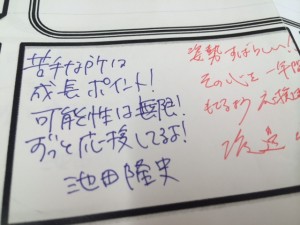 苦手な所は
成長ポイント!
可能性は無限!
ずっと応援してるよ!
池田隆史
姿勢すばらしい!
その心を一年間